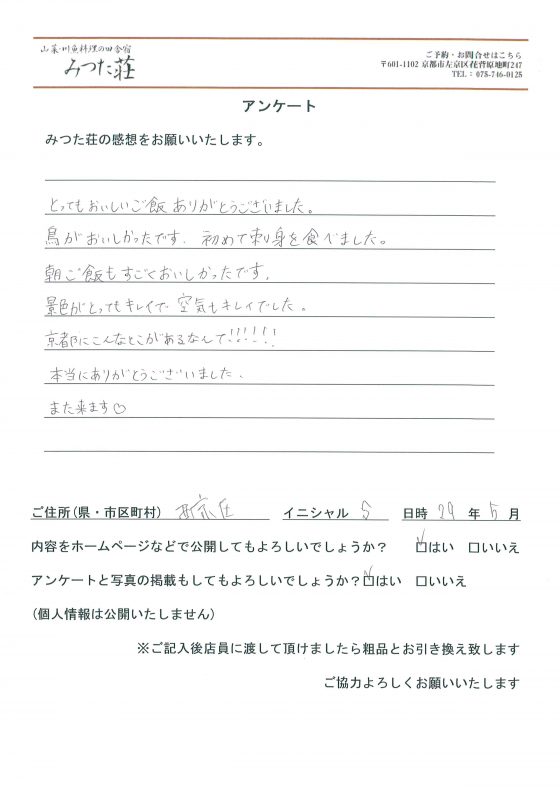 山菜・川魚料理の田舎宿
みつた荘
ご予約・お問合せはこちら
〒601-1102 京都市左京区花背原地町247
TEL: 075-746-0125
アンケート
みつた荘の感想をお願いいたします。
とってもおいしいご飯ありがとうございました。
鳥がおいしかったです。初めて刺身を食べました。
朝ご飯もすごくおいしかったです。
景色がとってもキレイで空気もキレイでした。
京都にこんなとこがあるなんて!!!!!!
本当にありがとうございました。
また来ます♡
ご住所(県・市区町村) 西京区 イニシャル S 日時 29 年 5 月
内容をホームページなどで公開してもよろしいでしょうか? ☑はい □いいえ
アンケートと写真の掲載もしてもよろしいでしょうか?☑はい □いいえ
(個人情報は公開いたしません)
※ご記入後店員に渡して頂けましたら粗品とお引き換え致します
ご協力よろしくお願いいたします